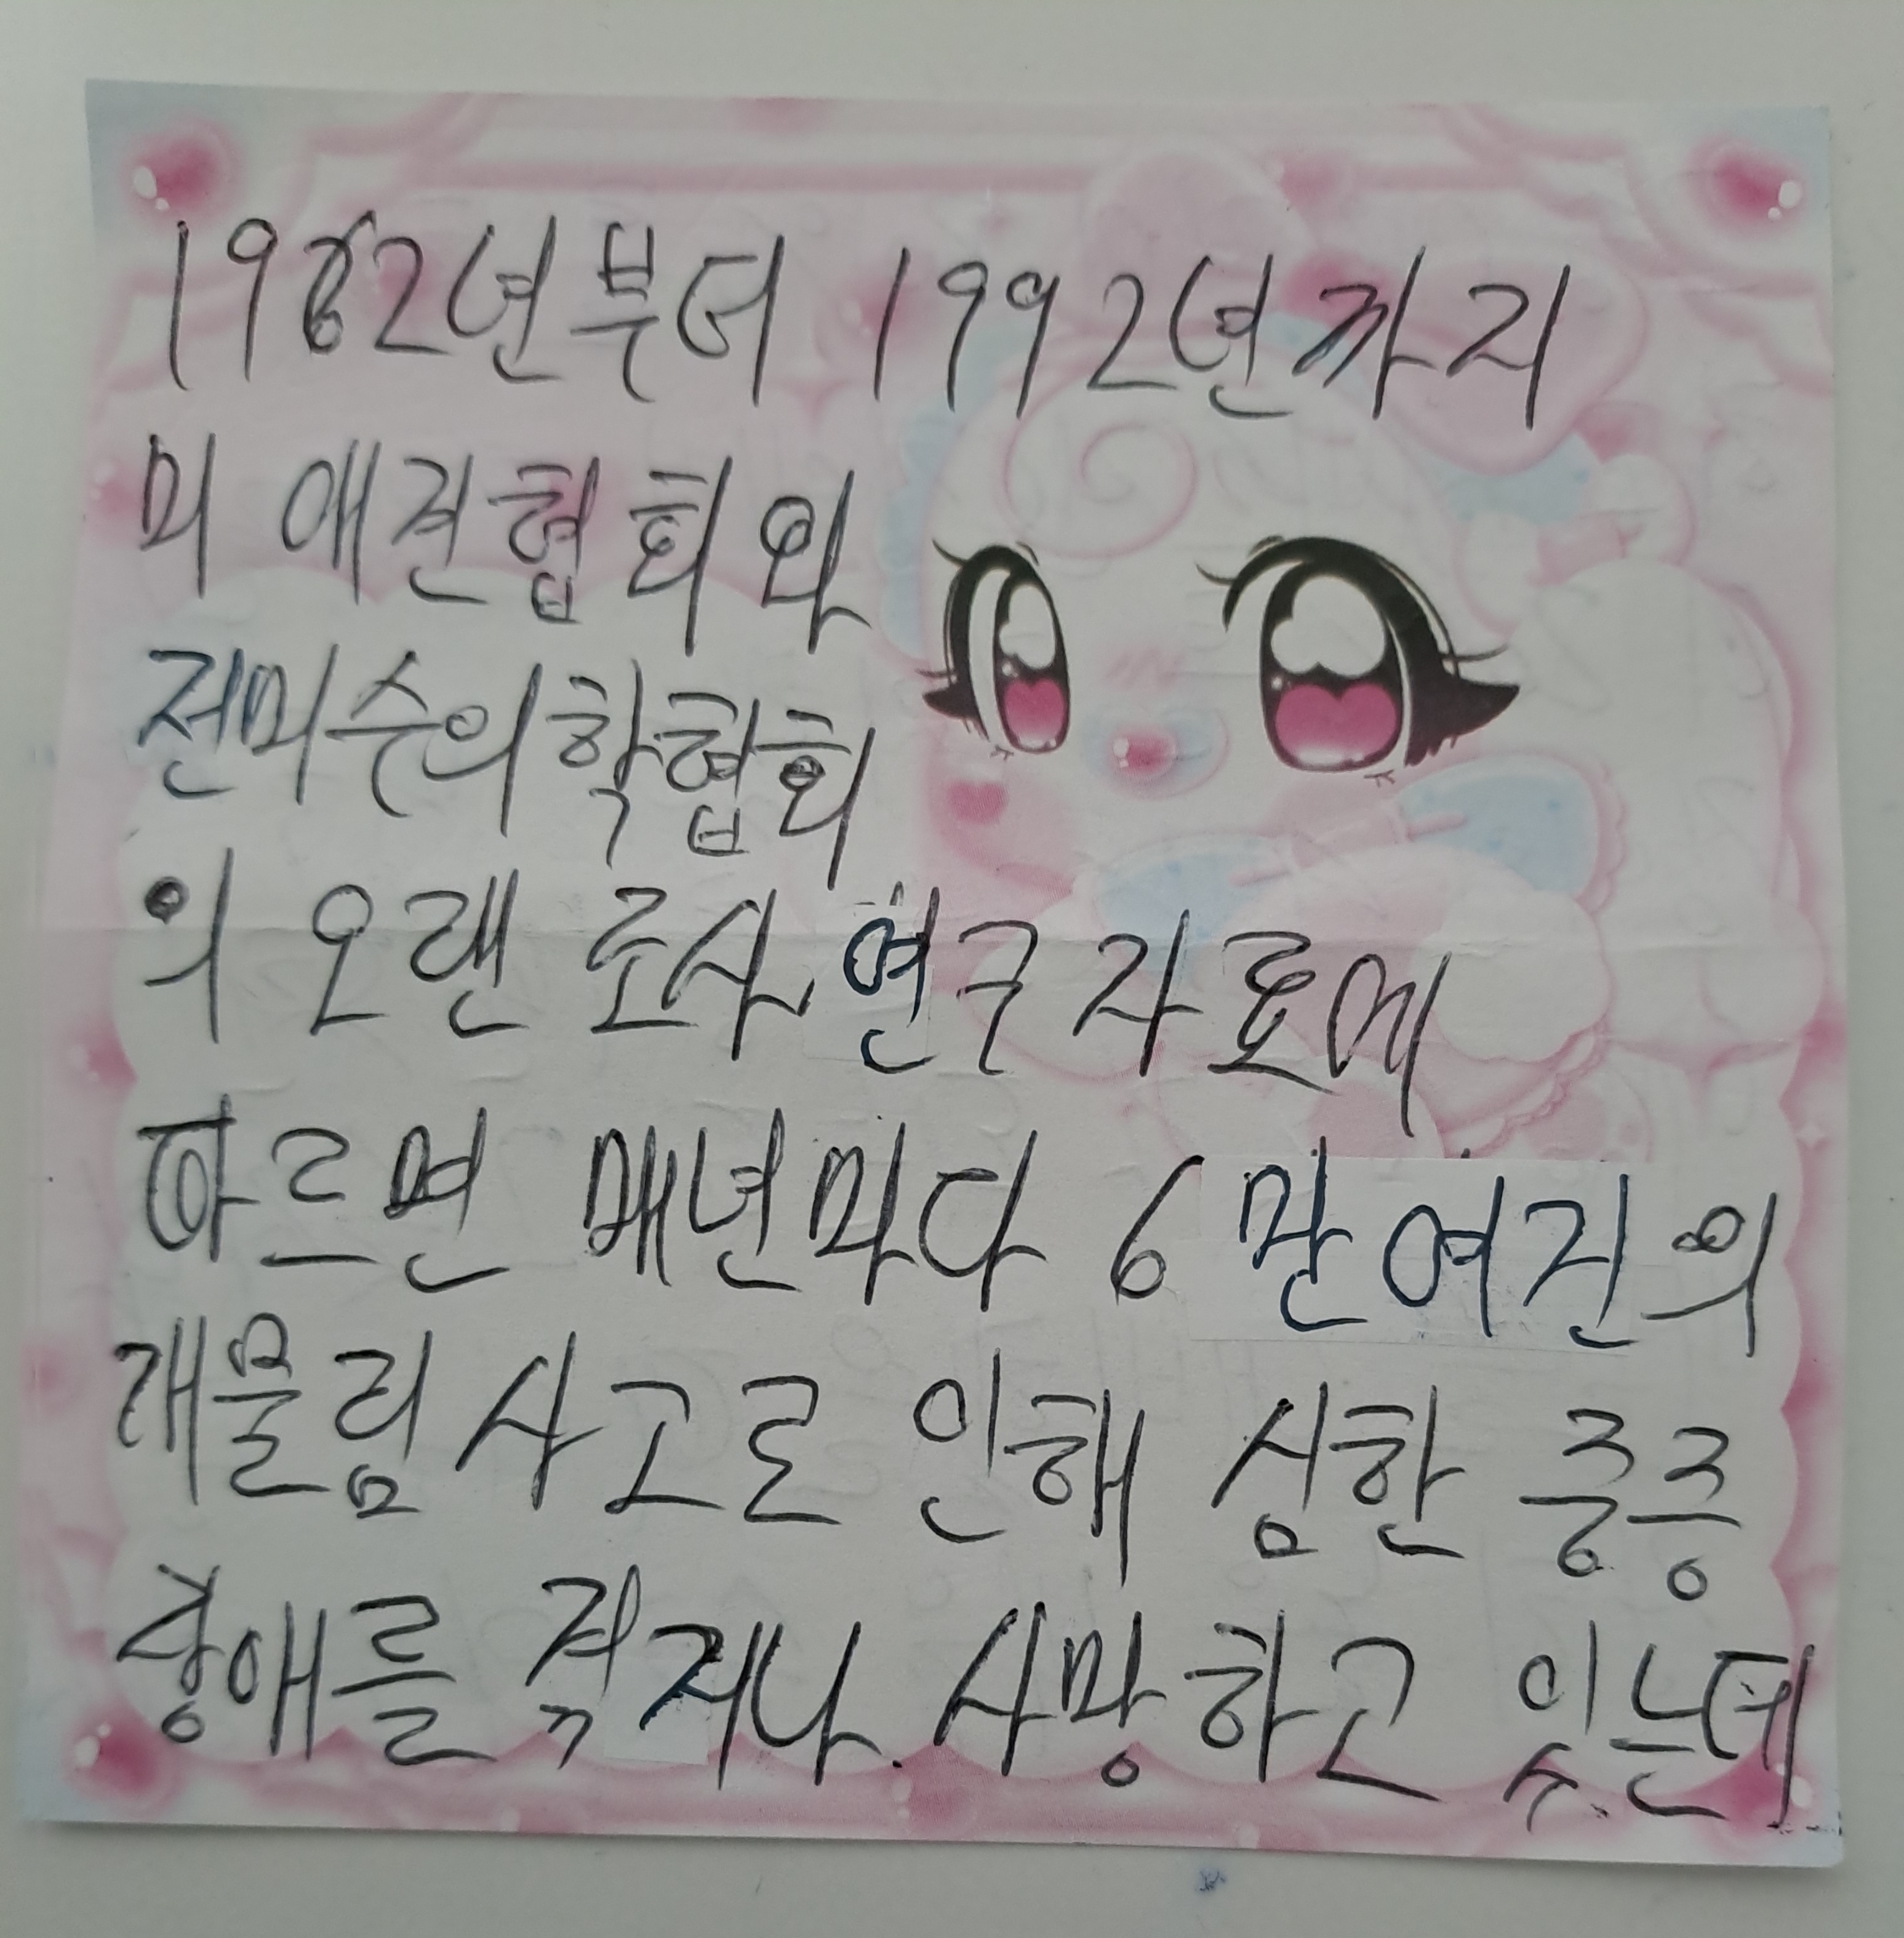 1982년부터 1992년까지
미 애견협회와
전미수의학협회
의 오랜 조사 연구 자료에
따르면 매년마다 6만여건의
개물림 사고로 인해 심한 중증
장애를 겪거나 사망하고 있는데